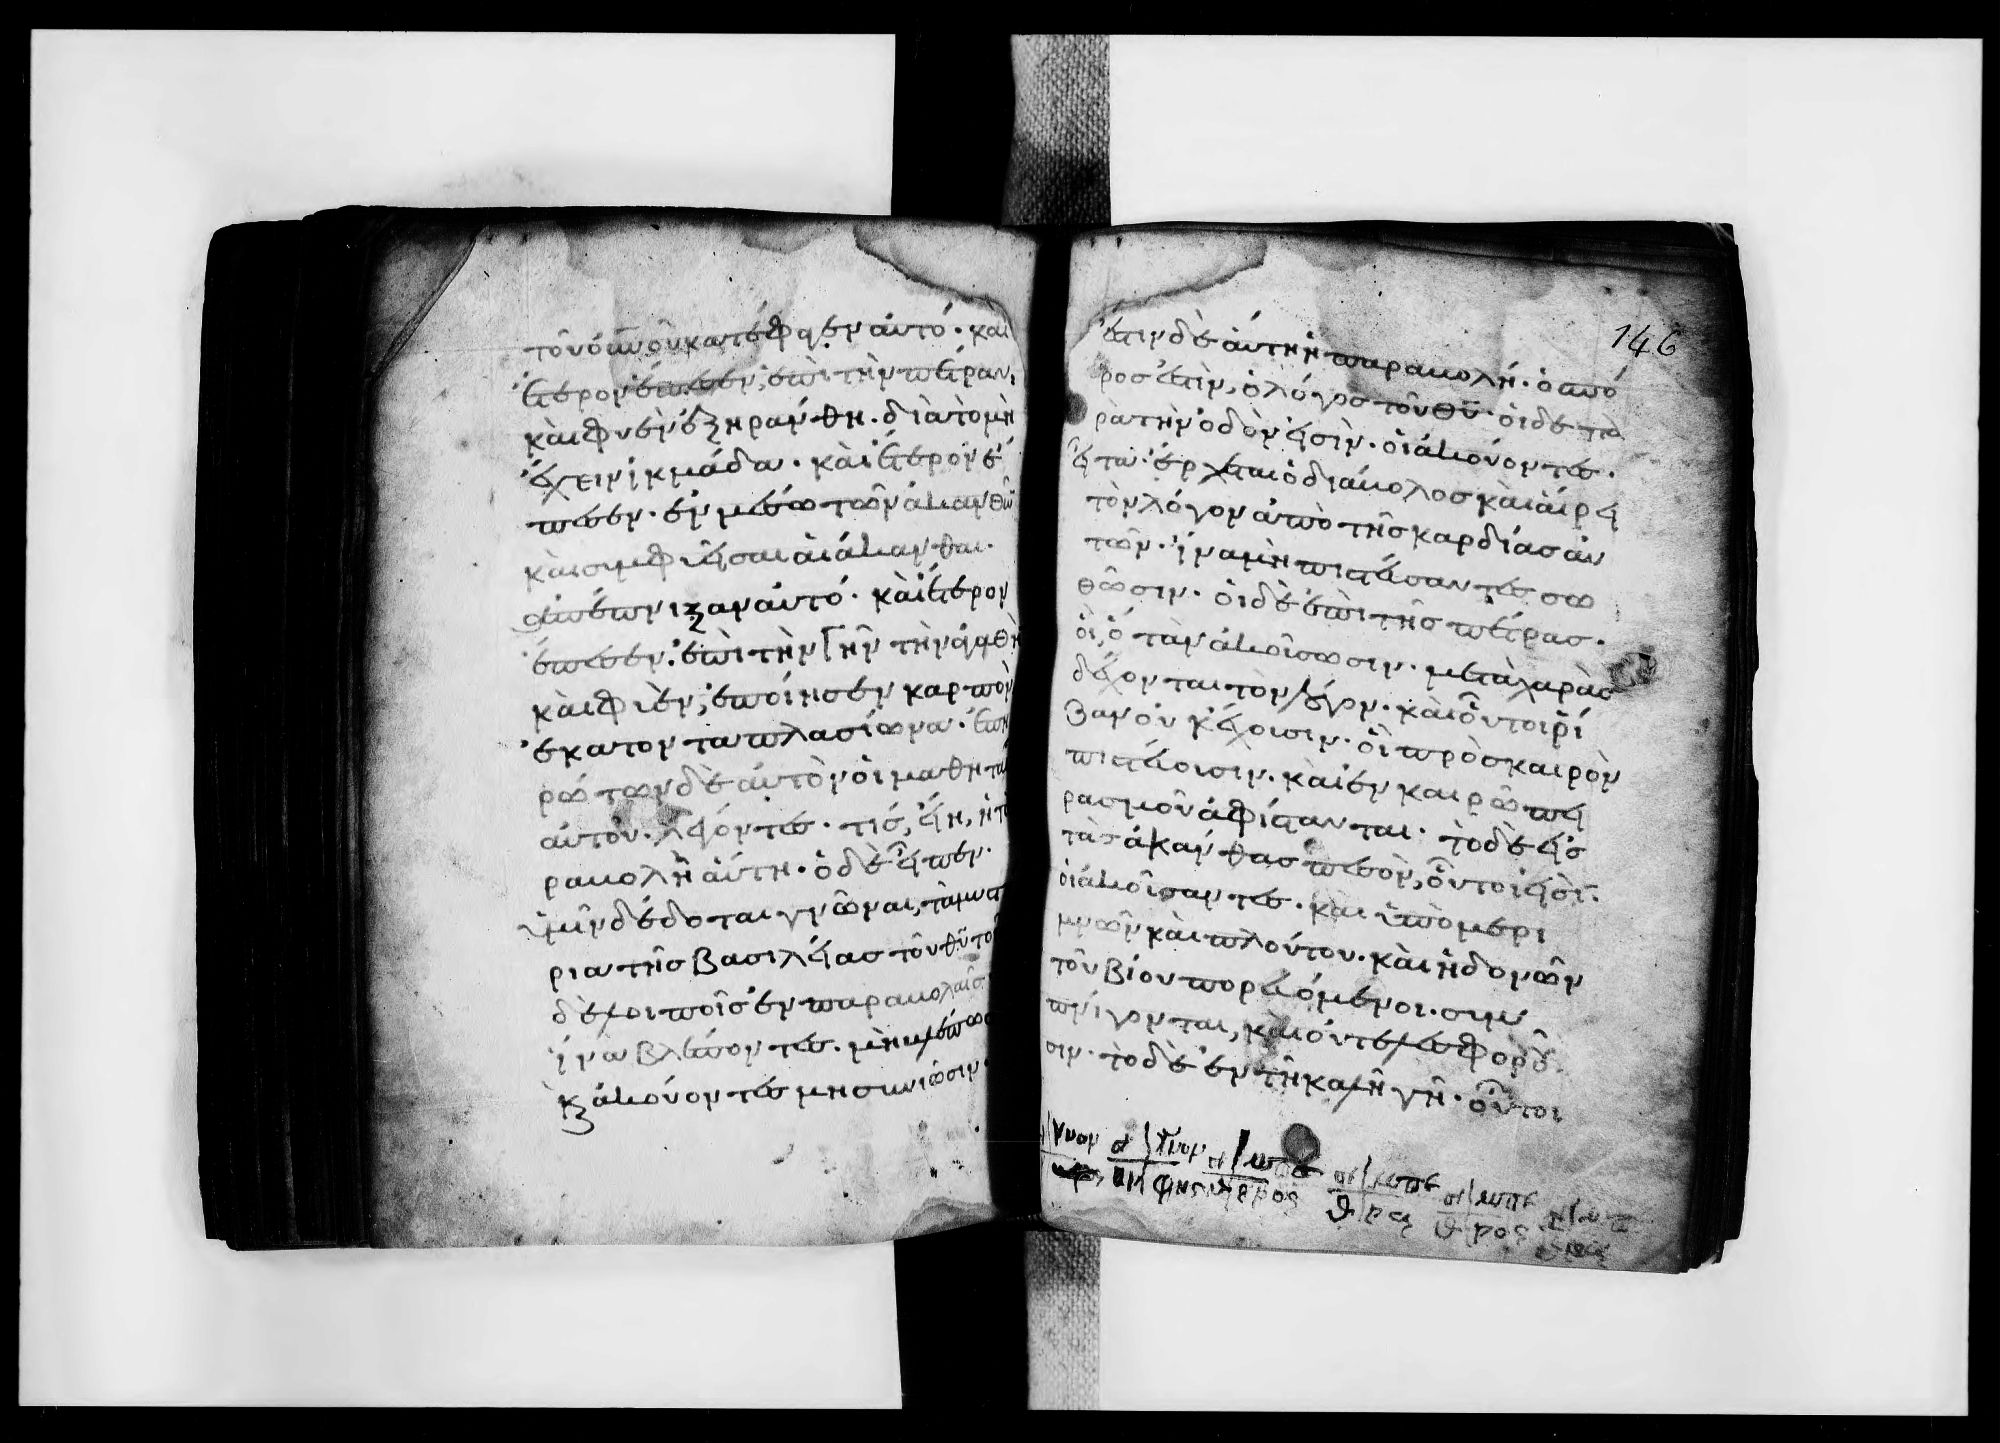 τοῦ οὐνοῦ κατέφαγεν αὐτό· και
ἕτερον ἔπεσεν, ἐπι τὴν πέτραν,
καὶ φυεν ἐξηράνθη. διὰ τὸ μὴ
ἔχειν ἰκμάδα· καὶ ἕτερον ἔ
πεσεν· ἐν μέσω τῶν ἀκανθῶ
καὶ σιμφυεῖσαι αἱ ἄκανθαι·
ἀπέπνιξαν αὐτό· καὶ ἕτερον
ἔπεσεν· ἐπὶ τὴν γῆν τὴν ἀγαθὴ
καὶ φυὲν, ἐποίησεν καρπὸν
ἑκατονταπλασίωνα· ἐπη
ρώτων δὲ αὐτὸν οἱ μαθηται
αὐτοῦ· λέγοντες· τίς, εἴη, ἡ πα
ραβολὴ αὕτη· ὁ δὲ εἶπεν·
ὑμῖν δέδοται γνῶναι, τὰ μυστ
ρια τῆς βασιλείας τοῦ θυ το
δὲ λοιποῖς ἐν παραβολαῖς
ἵνα βλέποντες· μὴ βλέπωσ
κ ἀκούοντες μη συνιῶσιν·
ἔστιν δὲ αὕτη ἡ παραβολή· ὁ σπό
ρος ἐστὶν, ὁ λόγος τοῦ θυ· οἱ δὲ πα
ρὰ τὴν ὁδὸν εἰσὶν· οἱ ἀκούοντες·
εἶτα ἔρχεται ὁ διάβολος καὶ αἴρει
τὸν λόγον ἀπὸ τῆς καρδίας αὐ
τῶν· ἵνα μὴ πιστεύσαντες σω
θῶσιν· οἱ δὲ ἐπὶ τῆς πέτρας·
οἱ, ὅταν ἀκοῦσωσιν· μετὰ χαρὰς
δέχονται τὸν λόγον· καὶ οὗτοι ρί
ζαν οὐκ ἔχουσιν· οἱ πρὸς καιρὸν
πιστεύουσιν· καὶ ἐν καιρῶ πει
ρασμοῦ ἀφίστανται· τὸ δὲ εἰς
τὰς ἀκάνθας πεσὸν, οὗτοι εἰσὶ·
οἱ ἀκοῦσαντες· καὶ ὑπὸ μερι
μνῶν καὶ πλούτου· καὶ ἡδονῶν
τοῦ βίου πορευόμενοι· συμ
πνίγονται, καὶ οὐ τελεσφοροῦ
σιν· τὸ δὲ ἐν τῆ καλῆ γῆ· οὗτοι
146